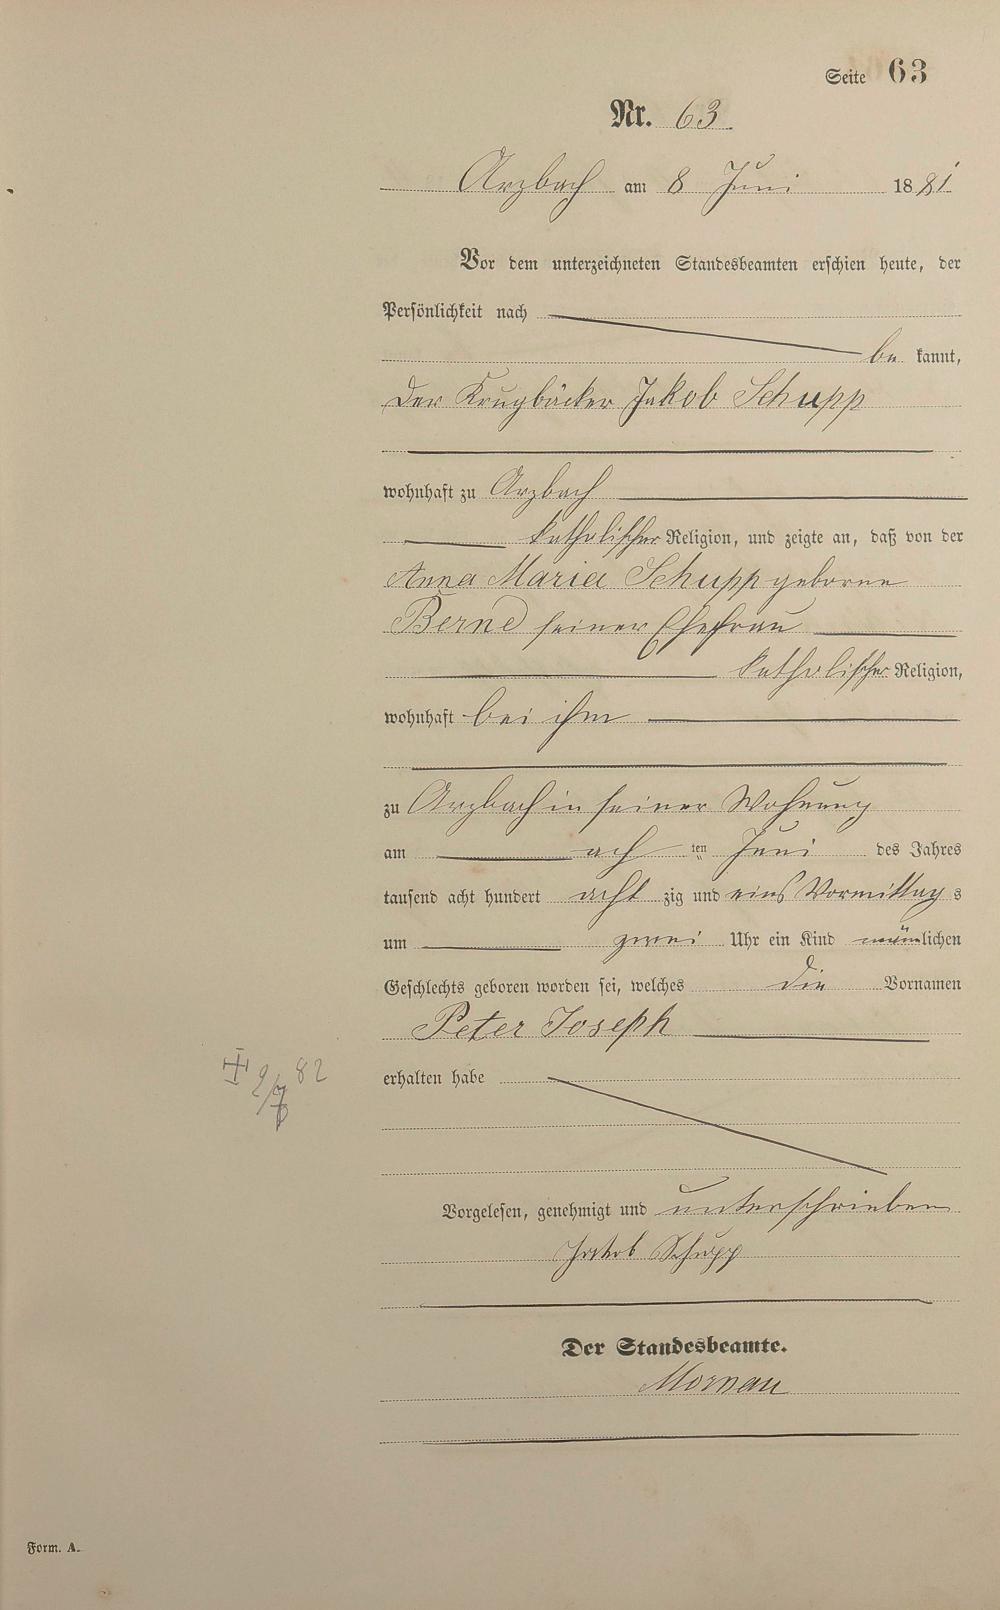 Seite 63
Nr. 63
Arzbach am 8 Juni 1881
Vor dem unterzeichneten Standesbeamten erschien heute, der
Persönlichkeit nach
be kannt,
der Krugbäcker Jakob Schupp
wohnhaft zu Arzbach
katholischer Religion, und zeigte an, daß von der
Anna Maria Schupp geborne
Bernd seiner Ehefrau
katholischer Religion,
wohnhaft bei ihm
zu Arzbach in seiner Wohnung
am ach ten Juni des Jahres
tausend acht hundert acht zig und eins Vormittag s
um zwei Uhr ein Kind männlichen
Geschlechts geboren worden sei, welches die Vornamen
Peter Joseph
erhalten habe
82
Vorgelesen, genehmigt und unterschrieben
Jakob Schupp
Der Standesbeamte.
Form. A.